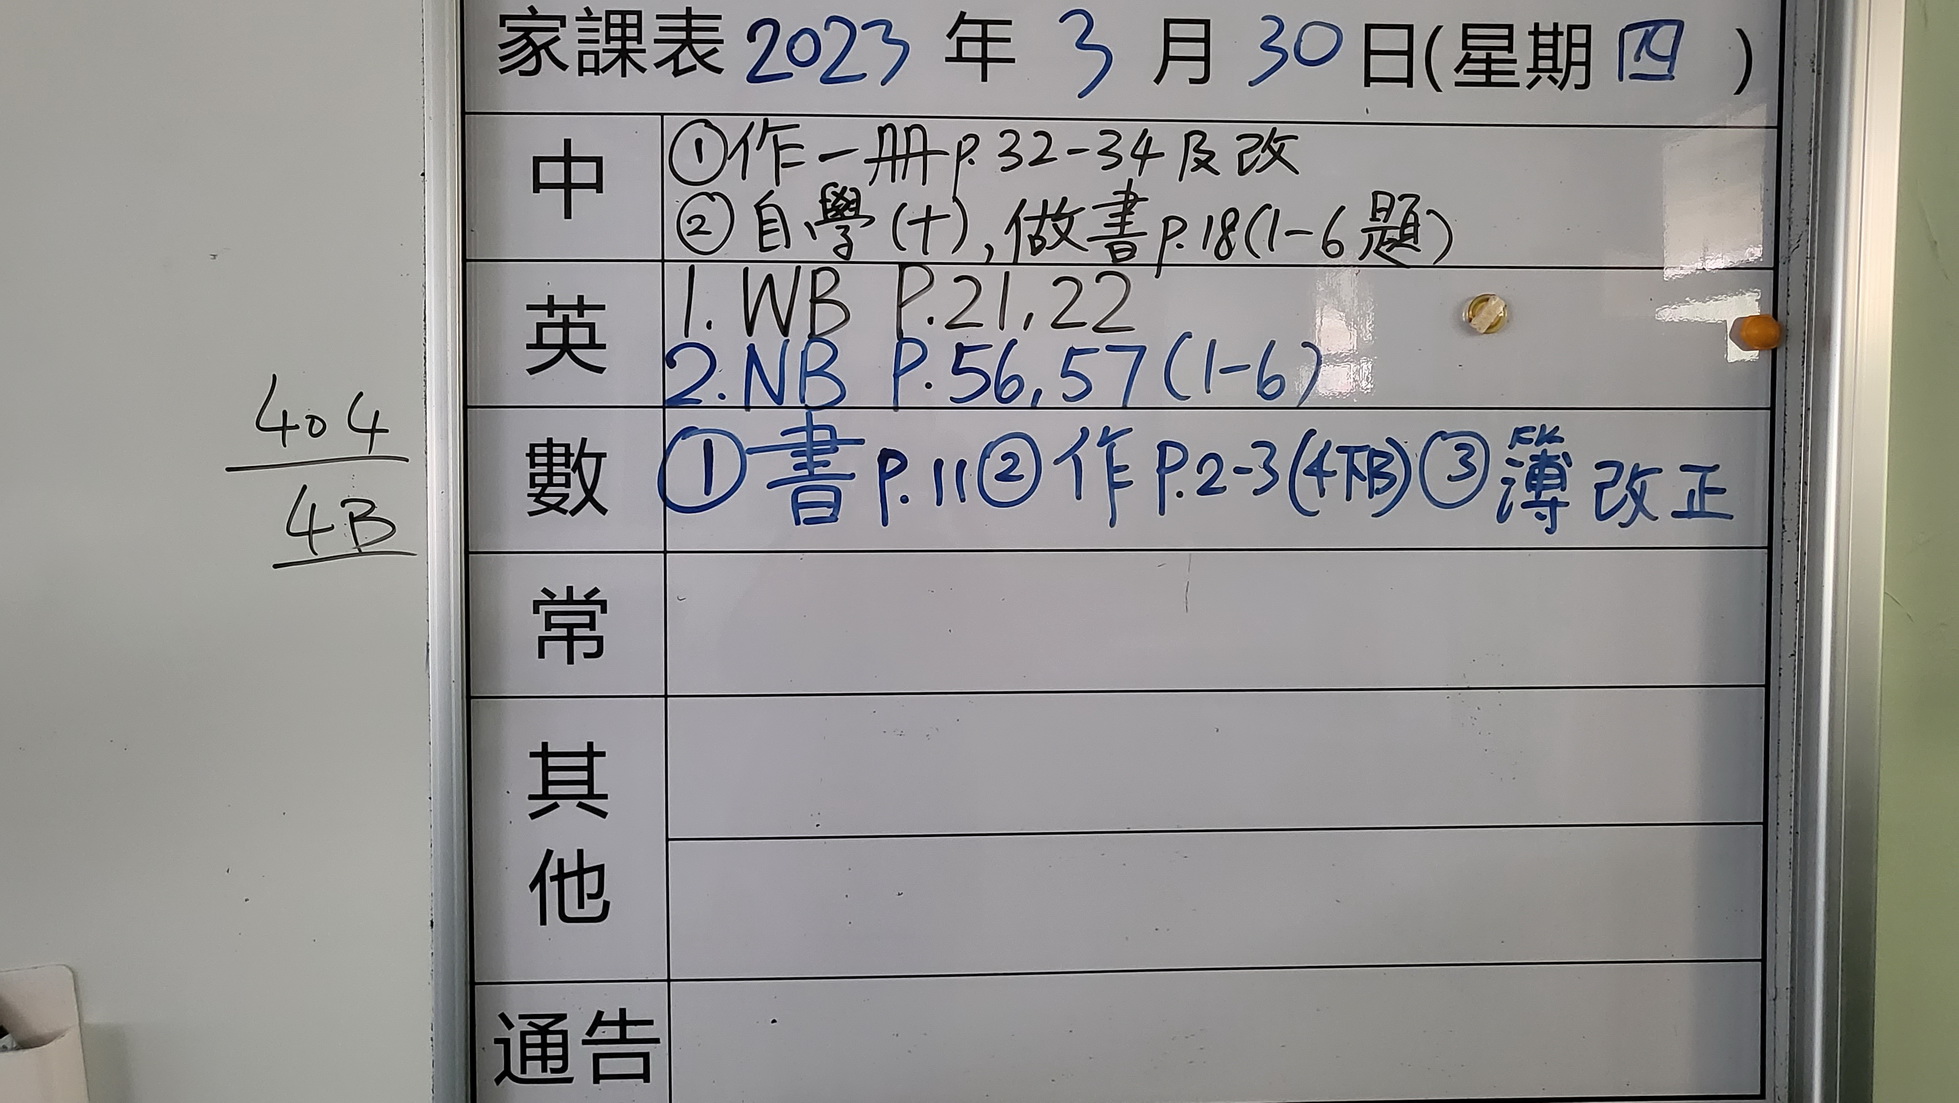 家課表 2023 年 3 月 30 日(星期四)
中
①作一册p.32-34及改
②自學(十),做書p.18(1-6題)
英
1. WB P.21,22
2. NB P.56,57(1-6)
數
①書p.11②作p.2-3(4下B)③簿改正
常
其他
通告
404
4B